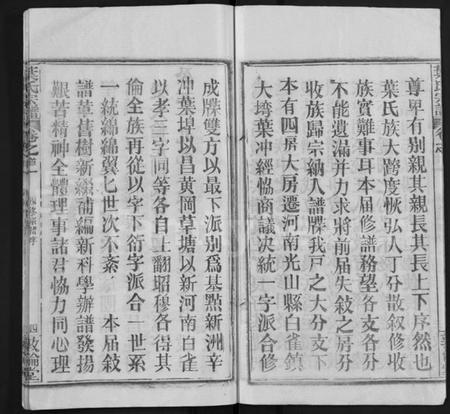 尊卑有別親其親長其長上下序然也
葉氏族大跨度恢弘人丁分散叙修收
族實難事耳本届修譜務望各支各分
不能遺漏并力求將前届失敍之房分
收族歸宗納入譜牒我戸之大分支下
本有四房大房遷河南光山縣白雀鎮
大塆葉冲經協商議决統一字派合修
成牒雙方以最下派别爲基點新洲辛
冲葉埠以昌黄岡草塘以新河南白雀
以孝三字同等各自上翻昭穆各得其
倫全族再從以字下衍字派合一世系
一統綿綿翼七世次不紊 本届敍
譜葺舊樹新綴補編新科學辦譜發揚
艱苦精神全體理事諸君恊力同心理
葉氏宗譜 卷之首一 四修源流序 四 敦倫堂
葉氏宗譜 卷之